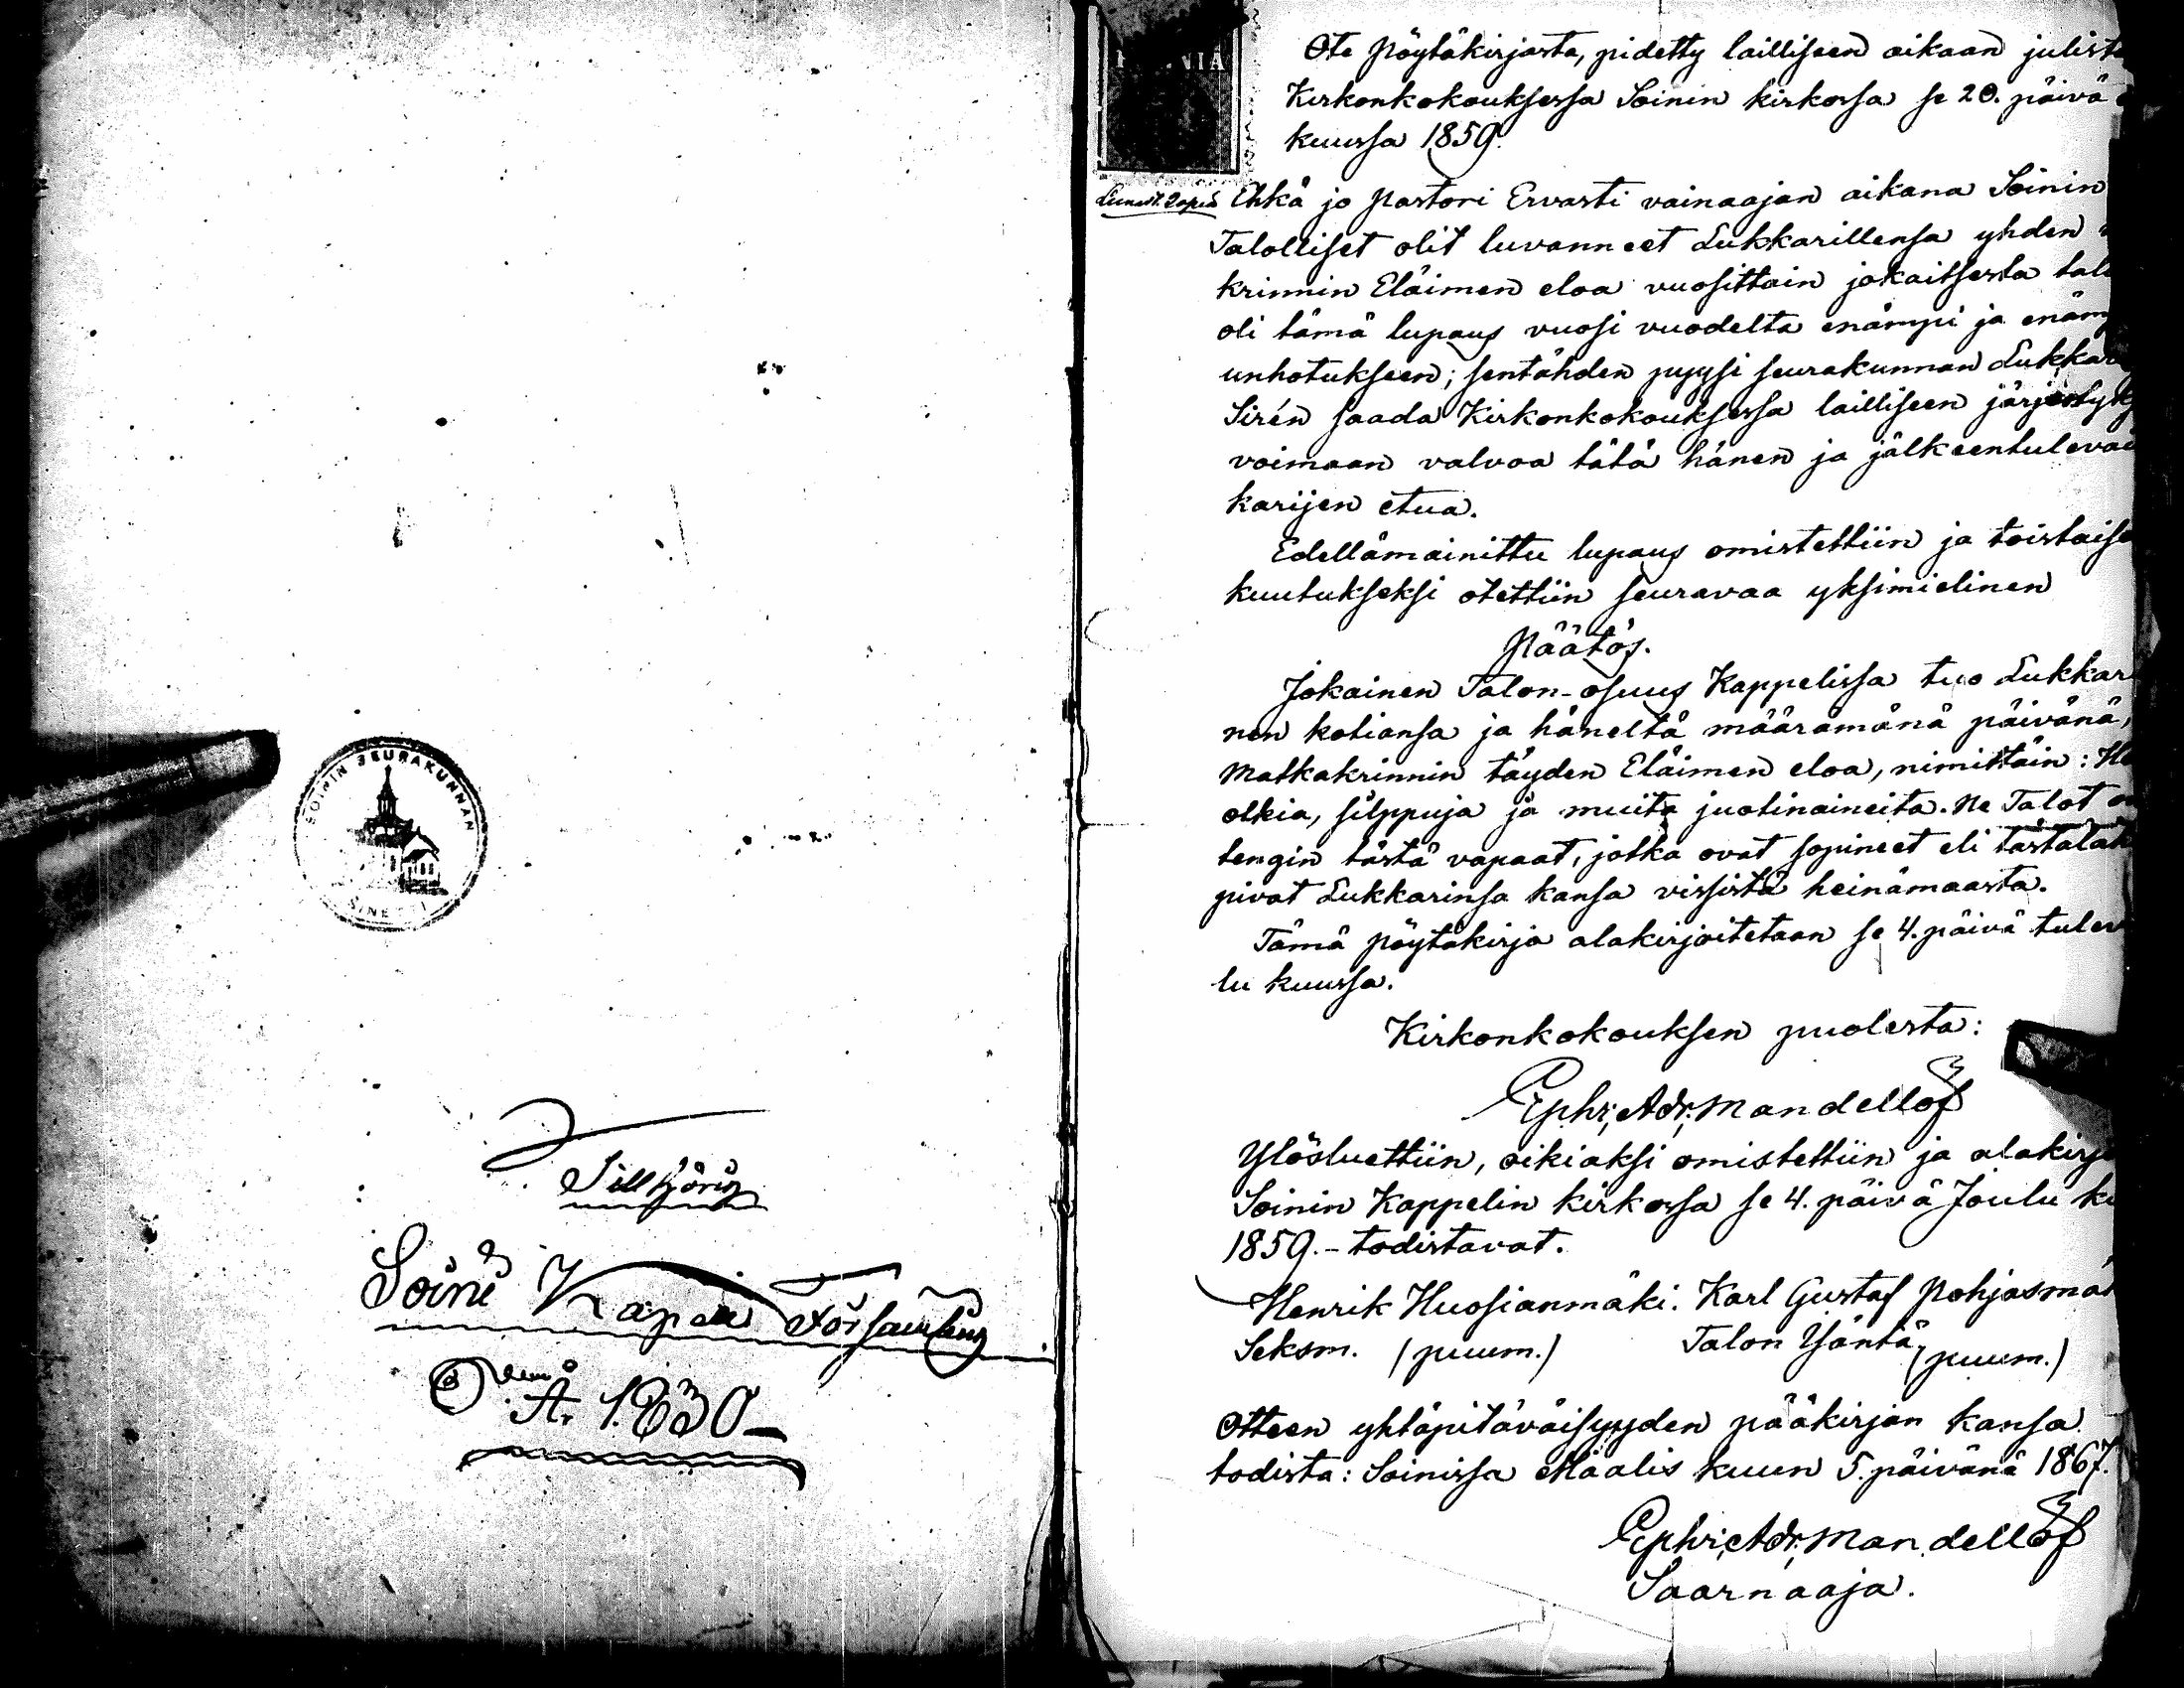 SOININ SEURAKUNNAN
SINETTI
Tillhörig
Soini Kapell Församling
År 1830
Ote Pöytäkirjasta, pidetty lailliseen aikaan julist
Kirkonkokouksessa Soinin kirkossa se 20. päivä
kuussa 1859.
Ehkä jo Pastori Ervasti vainaajan aikana Soinin
Talolliset olit luvanneet Lukkarillensa yhden
krinnin Eläimen eloa vuosittain jokaitsesta talo
oli tämä lupaus vuosi vuodelta enämpi ja enäm
unhotukseen; sentähden pyysi seurakunnan Lukkar
Sirén saada Kirkonkokouksessa lailliseen järjestyk
voimaan valvoa tätä hänen ja jälkeentulevai
karijen etua.
Edellämainittu lupaus omistettiin ja toistaise
kuutukseksi otettiin seuravaa yksimielinen
Päätös.
Jokainen Talon-osuus Kappelissa tuo Lukkar
nen kotiansa ja häneltä määrämänä päivänä,
Matkakrinnin täyden Eläimen eloa, nimittäin: He
olkia, silppuja ja muita juotinaineita. Ne Talot o
tengin tästä vapaat, jotka ovat sopineet eli tästälä
pivat Lukkarinsa kansa vissistä heinämaasta.
Tämä pöytäkirja alakirjoitetaan se 4. päivä tulev
lu kuussa.
Kirkonkokouksen puolesta:
Ephr; Adr; Mandellöf
Ylösluettiin, oikiaksi omistettiin ja alakirjo
Soinin Kappelin kirkossa se 4. päivä Joulu ku
1859.- todistavat.
Henrik Huosianmäki. Karl Gustaf Pohjasmä
Seksm. (puum.) Talon Isäntä, (puum.)
Otteen yhtäpitäväisyyden pääkirjan kansa
todista: Soinissa Maalis kuun 5. päivänä 1867.
Ephr; Adr; Mandellöf
Saarnaaja.